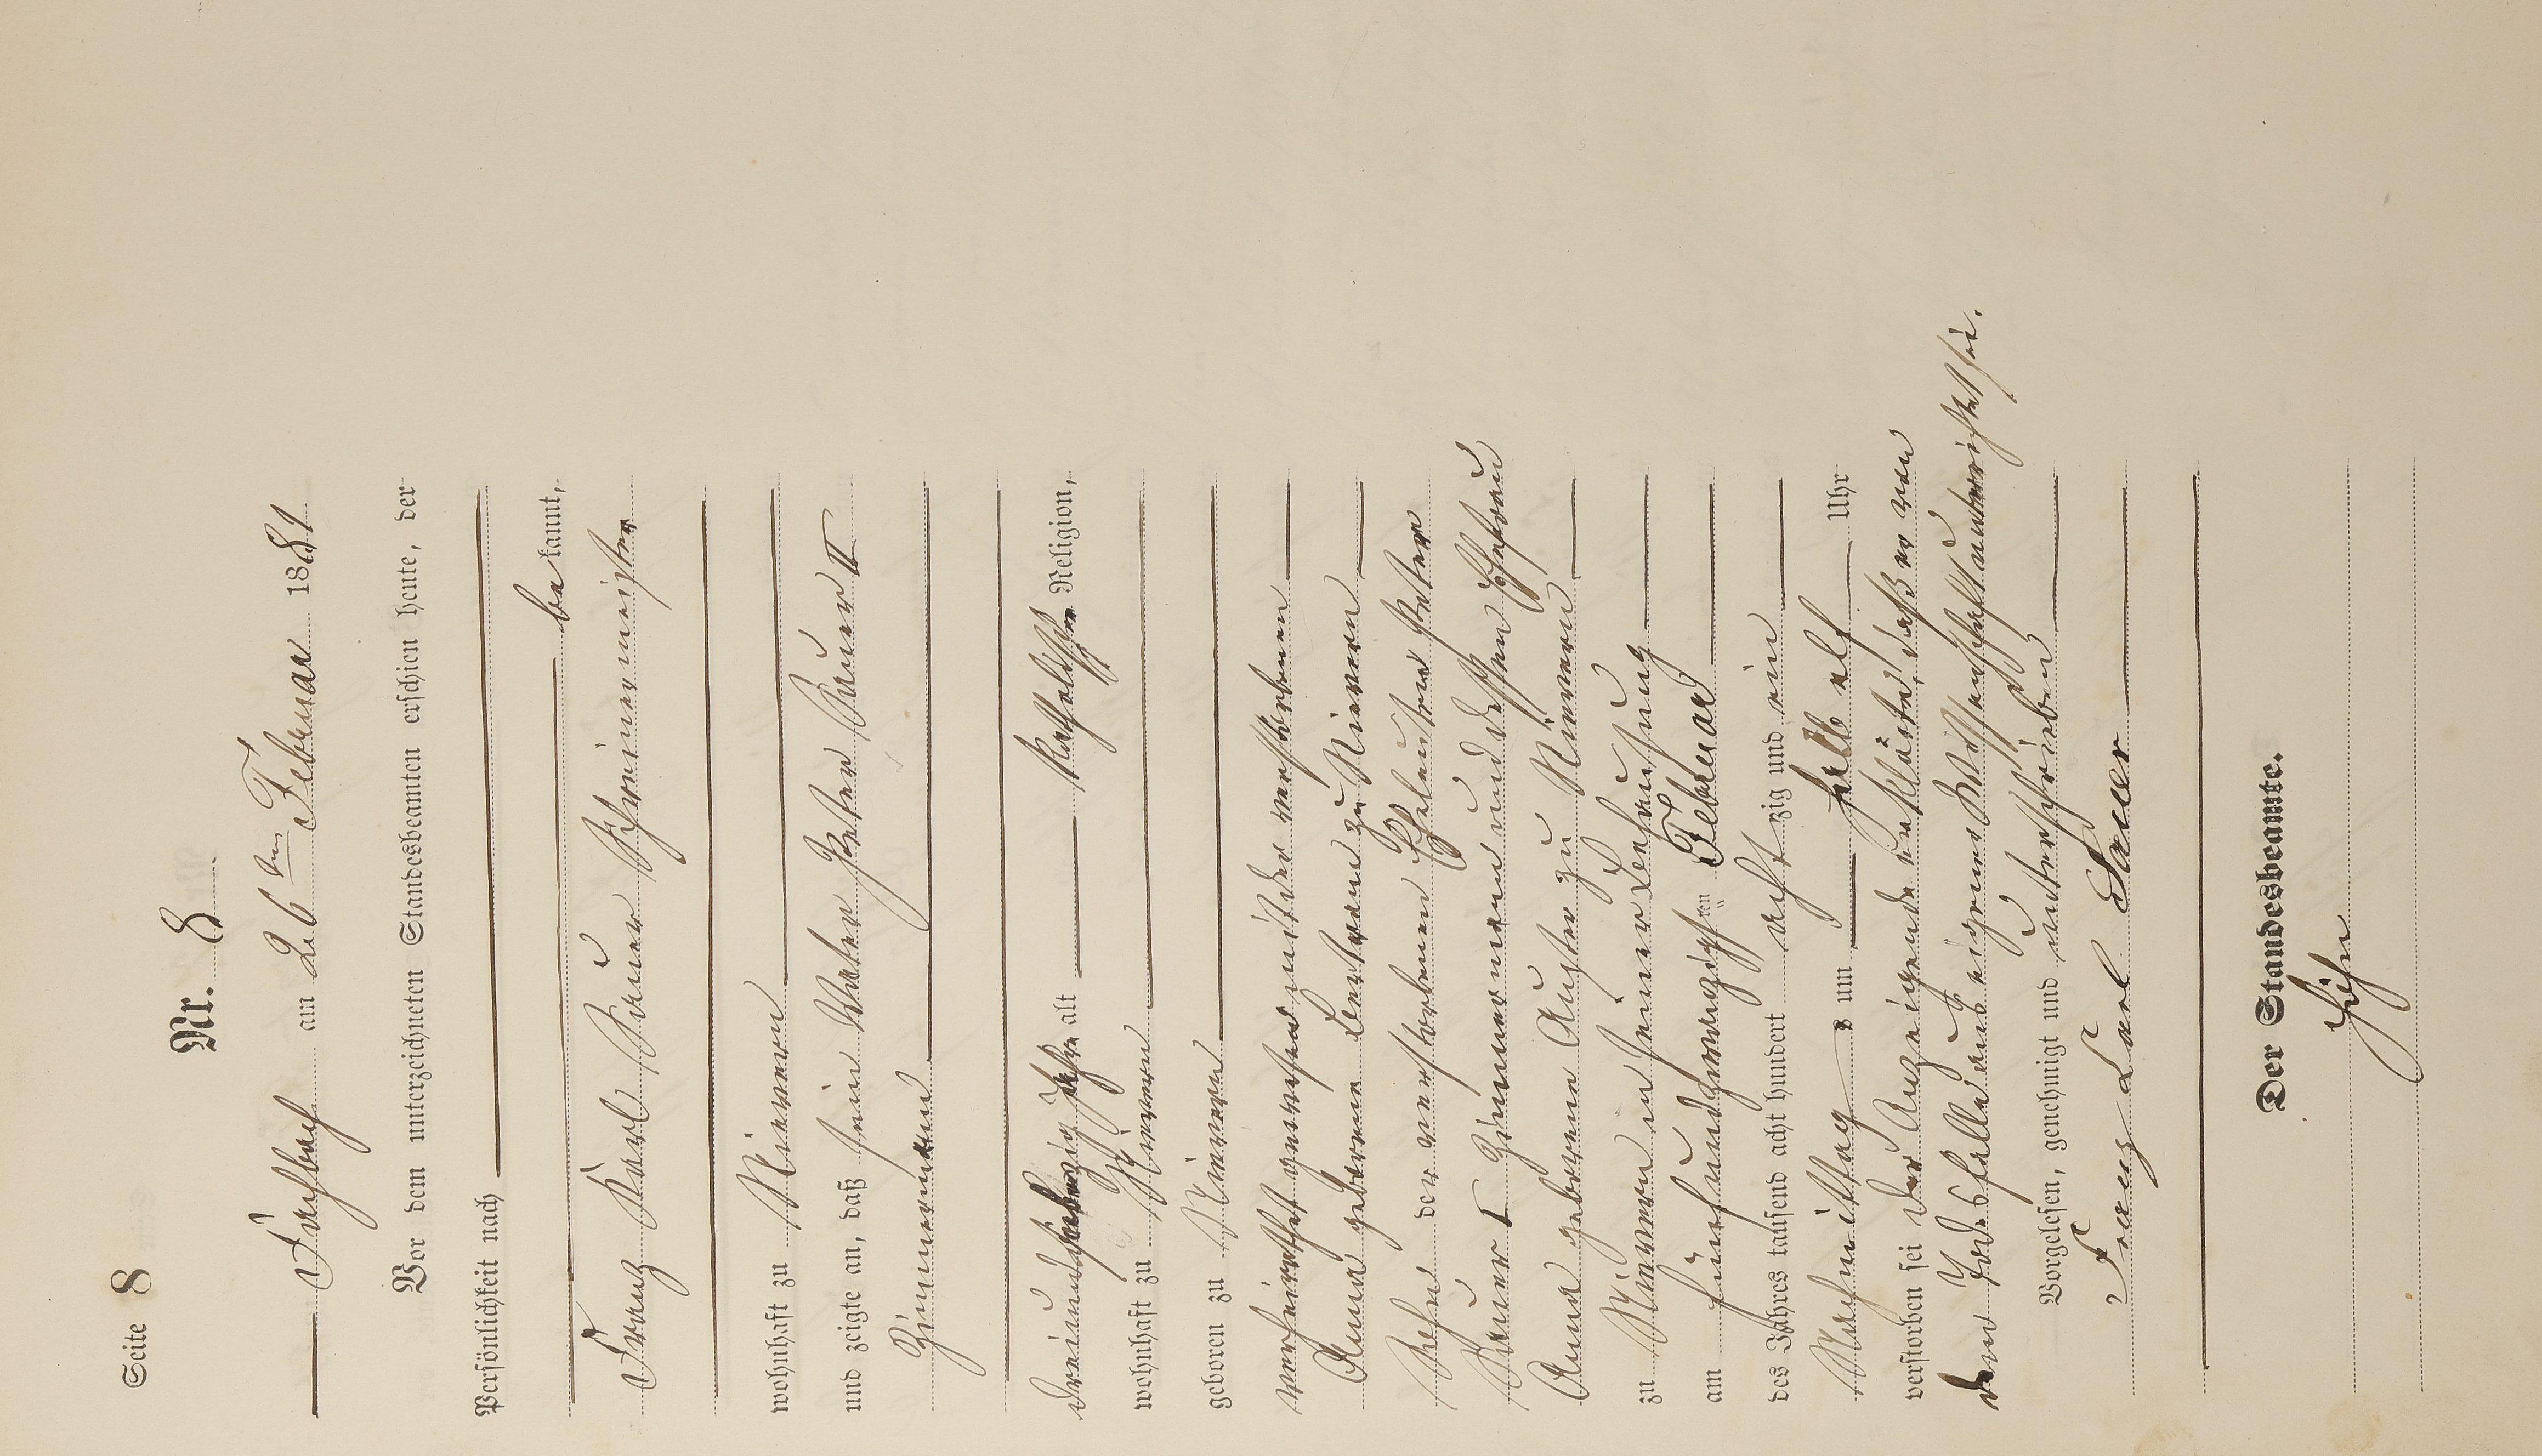 Seite 8
Nr. 8
Fachbach am 26ten Februar 1881
Vor dem unterzeichneten Standesbeamten erschien heute, der
Persönlichkeit nach
be kannt,
Franz Karl Sauer Schreinermeister
wohnhaft zu Nievern
und zeigte an, daß sein Vater Peter Sauer II
Zimmermann
dreiundsiebenzig Jahre alt katholischer Religion,
wohnhaft zu Nievern
geboren zu Nievern
verheirathet gewesen mit der verstorbenen
Anna geborene zu Nievern
Sohn der verstorbenen Eheleute Peter
Sauer I Zimmermann und dessen Ehefrau
Anna geborene zu Nievern
zu Nievern in seiner Behausung
am fünfundzwanzigsten Februar
des Jahres tausend acht hundert acht zig und ein
Nachmittag s um halb elf Uhr
verstorben sei der Anzeigende erklärte, daß er von
dem Todesfalle aus eigener Wissenschaft unterrichtet sei.
Vorgelesen, genehmigt und unterschrieben
Franz Carl Sauer
Der Standesbeamte.